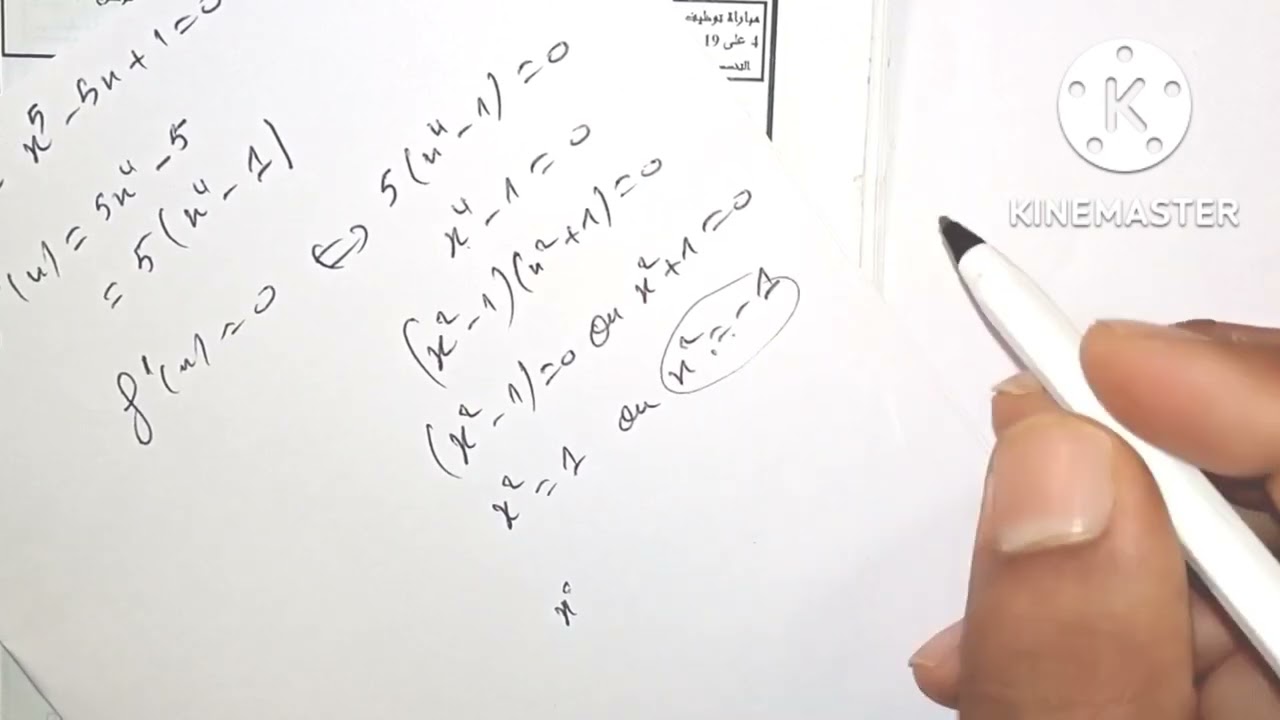 x⁵ - 5x + 1 = 0
(x) = 5x⁴ - 5
= 5(x⁴ - 1)
f'(x) = 0 ⇔ 5(x⁴ - 1) = 0
x⁴ - 1 = 0
(x² - 1)(x² + 1) = 0
(x² - 1) = 0 ou x² + 1 = 0
x² = 1 ou x² = -1
x
مباراة توظيف
4 على 19
K
KINEMASTER